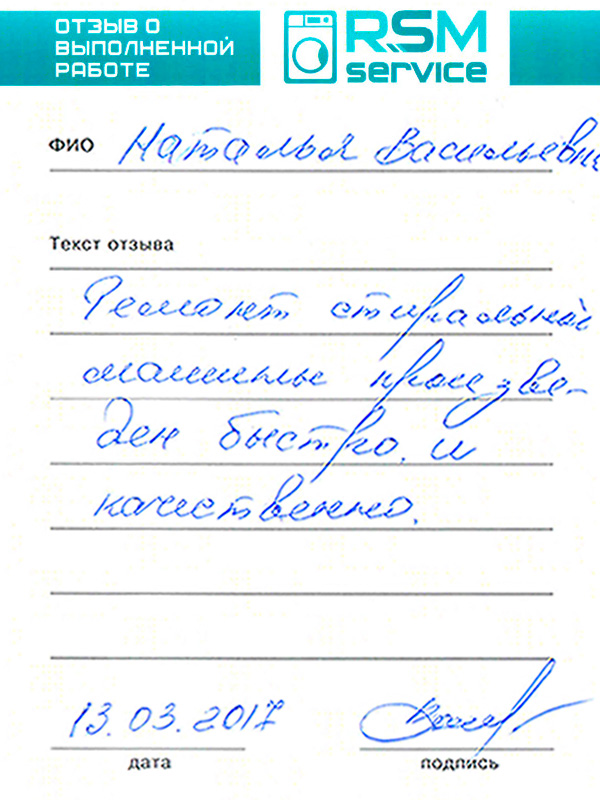 ОТЗЫВ О
ВЫПОЛНЕННОЙ
РАБОТЕ
RSM
service
ФИО Наталья Васильевна
Текст отзыва
Ремонт стиральной
машины произве-
ден быстро и
качественно.
13.03.2017
дата
подпись